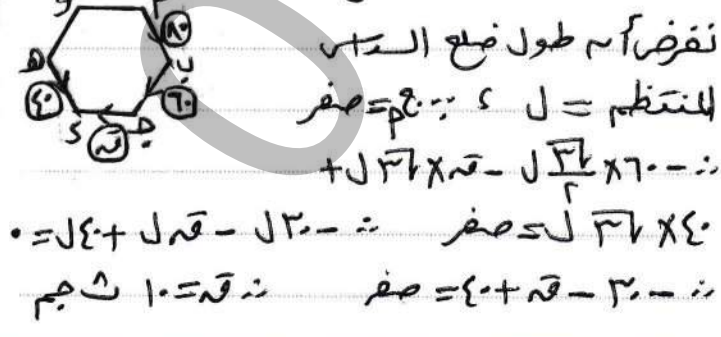 و م
٨٠
هـ ب
٤٠ ٦٠
ء جـ
قه
نفرض أن طول ضلع السداسي
المنتظم = ل ، ∵ جـ م = صفر
∴ - ٦٠ × √٣/٢ ل - قه × √٣ ل +
٤٠ × √٣ ل = صفر ∴ - ٣٠ ل - قه ل + ٤٠ ل = ٠
∴ - ٣٠ - قه + ٤٠ = صفر ∴ قه = ١٠ ث جم